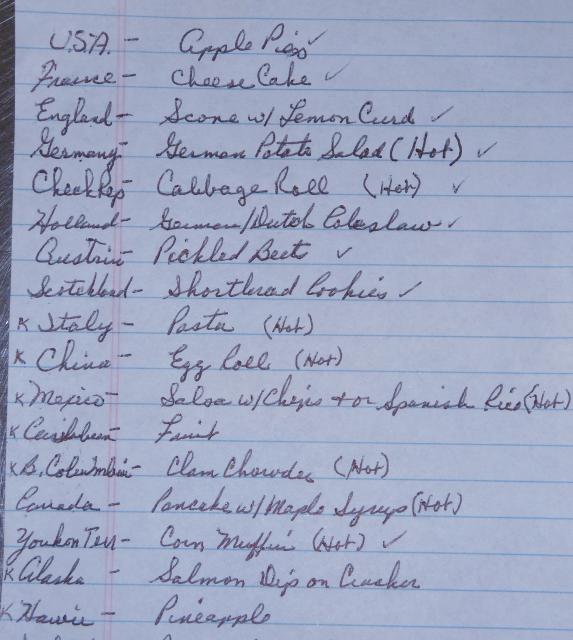 U.S.A. - Apple Pies ✓
France - Cheese Cake ✓
England - Scone w/ Lemon Curd ✓
Germany - German Potato Salad (Hot) ✓
Check Rep - Cabbage Roll (Hot) ✓
Holland - German/Dutch Coleslaw ✓
Austria - Pickled Beets ✓
Scotchland - Shortbread Cookies ✓
x Italy - Pasta (Hot)
x China - Egg Roll (Hot)
x Mexico - Salsa w/ Chips + or Spanish Rice (Hot)
x Caribbean - Fruit
x B. Columbia - Clam Chowder (Hot)
Canada - Pancake w/ Maple Syrup (Hot)
Youkon Terr - Corn Muffin (Hot) ✓
x Alaska - Salmon Dip on Cracker
x Hawii - Pineapple